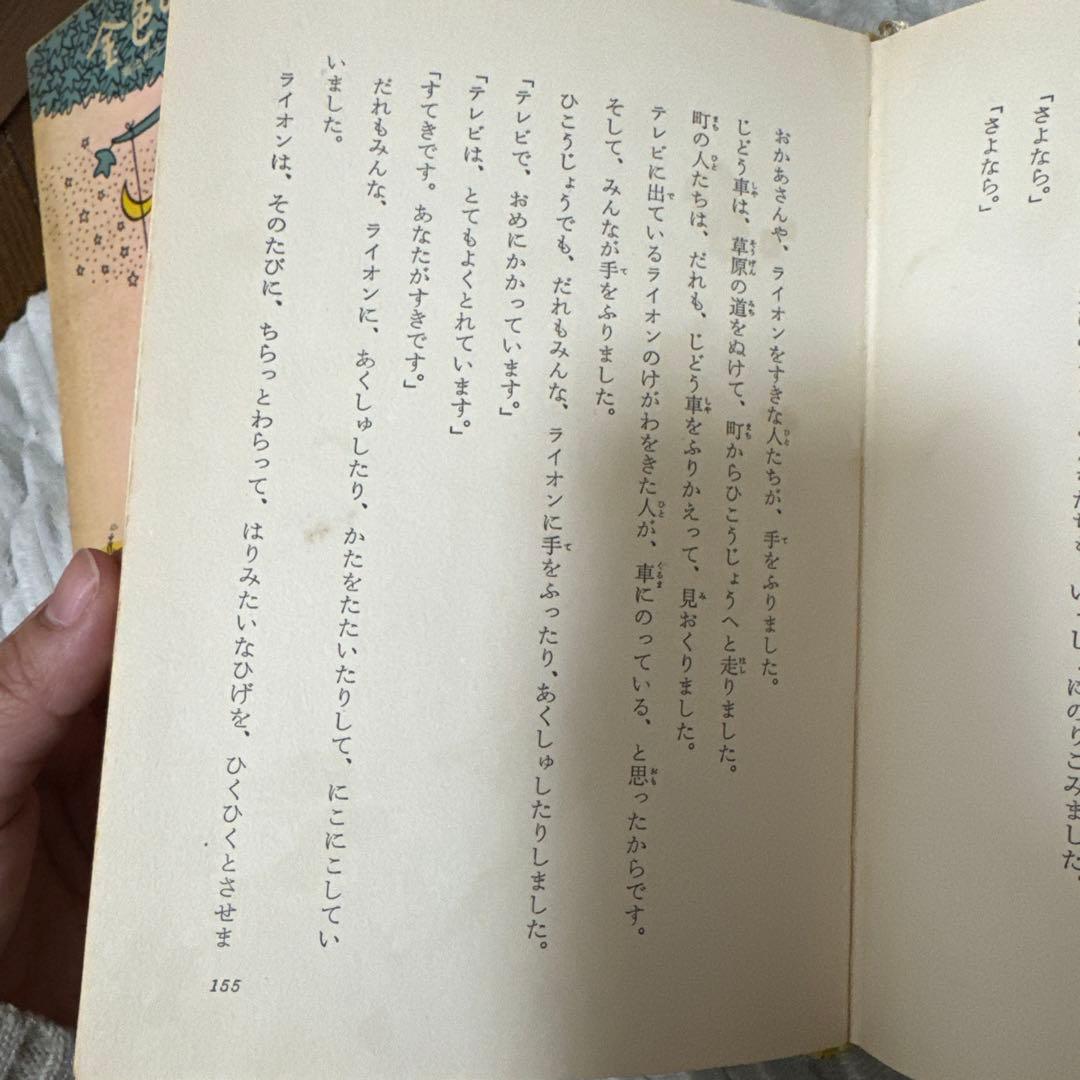 「さよなら。」
「さよなら。」
おかあさんや、ライオンをすきな人たちが、手をふりました。
じどう車は、草原の道をぬけて、町からひこうじょうへと走りました。
町の人たちは、だれも、じどう車をふりかえって、見おくりました。
テレビに出ているライオンのけがわをきた人が、車にのっている、と思ったからです。
そして、みんなが手をふりました。
ひこうじょうでも、だれもみんな、ライオンに手をふったり、あくしゅしたりしました。
「テレビで、おめにかかっています。」
「テレビは、とてもよくとれています。」
「すてきです。あなたがすきです。」
だれもみんな、ライオンに、あくしゅしたり、かたをたたいたりして、にこにこしてい
いました。
ライオンは、そのたびに、ちらっとわらって、はりみたいなひげを、ひくひくとさせま
155
金色